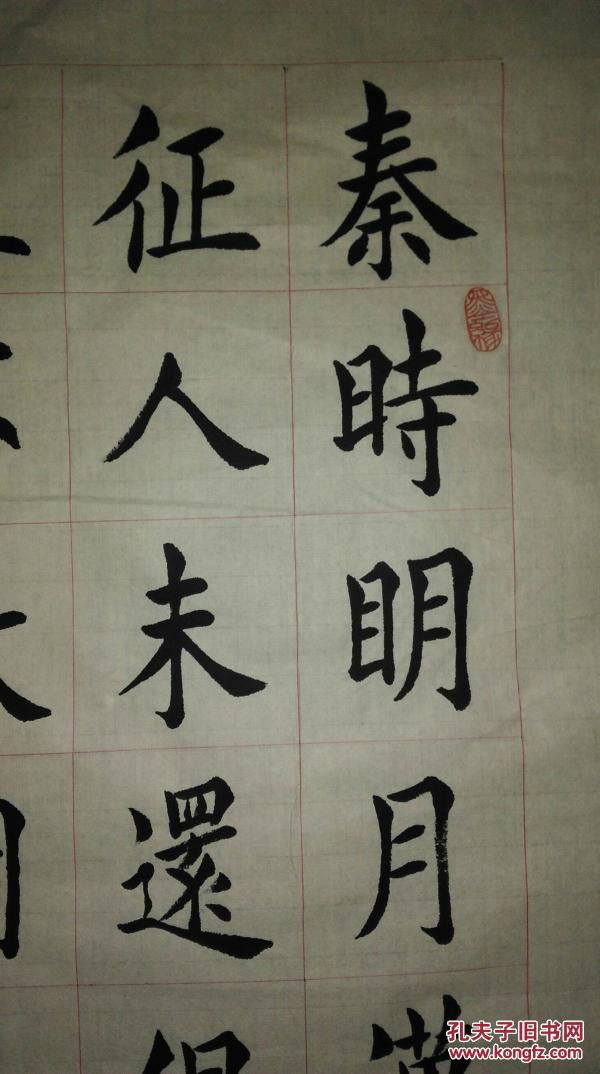 秦時明月
征人未還但
孔夫子旧书网
www.kongfz.com